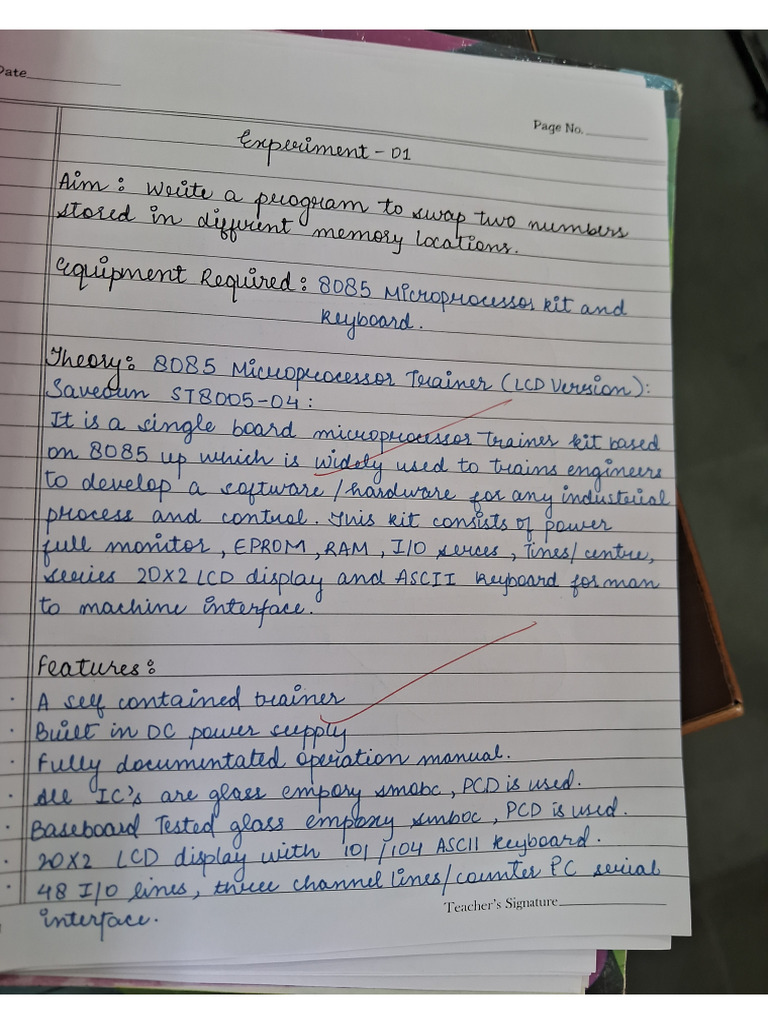 Date
Page No.
Experiment - 01
Aim : Write a program to swap two numbers
stored in diffrent memory locations.
Equipment Required : 8085 Microprocessor kit and
keyboard.
Theory : 8085 Microprocessor Trainer (LCD Version) :
Saveoun ST8005-04 :
It is a single board microprocessor trainer kit based
on 8085 up which is widely used to trains engineers
to develop a software / hardware for any industrial
process and control. This kit consists of power
full monitor , EPROM , RAM , I/O serces , Tines/ centre,
series 20X2 LCD display and ASCII keyboard for man
to machine interface.
Features :
· A self contained trainer
· Built in DC power supply
· Fully documentated operation manual.
· All IC's are glass empory smobc , PCD is used.
· Baseboard Tested glass empoxy smboc , PCD is used.
· 20X2 LCD display with 101/104 ASCII keyboard.
· 48 I/O lines, three channel lines/counter PC serial
interface.
Teacher's Signature